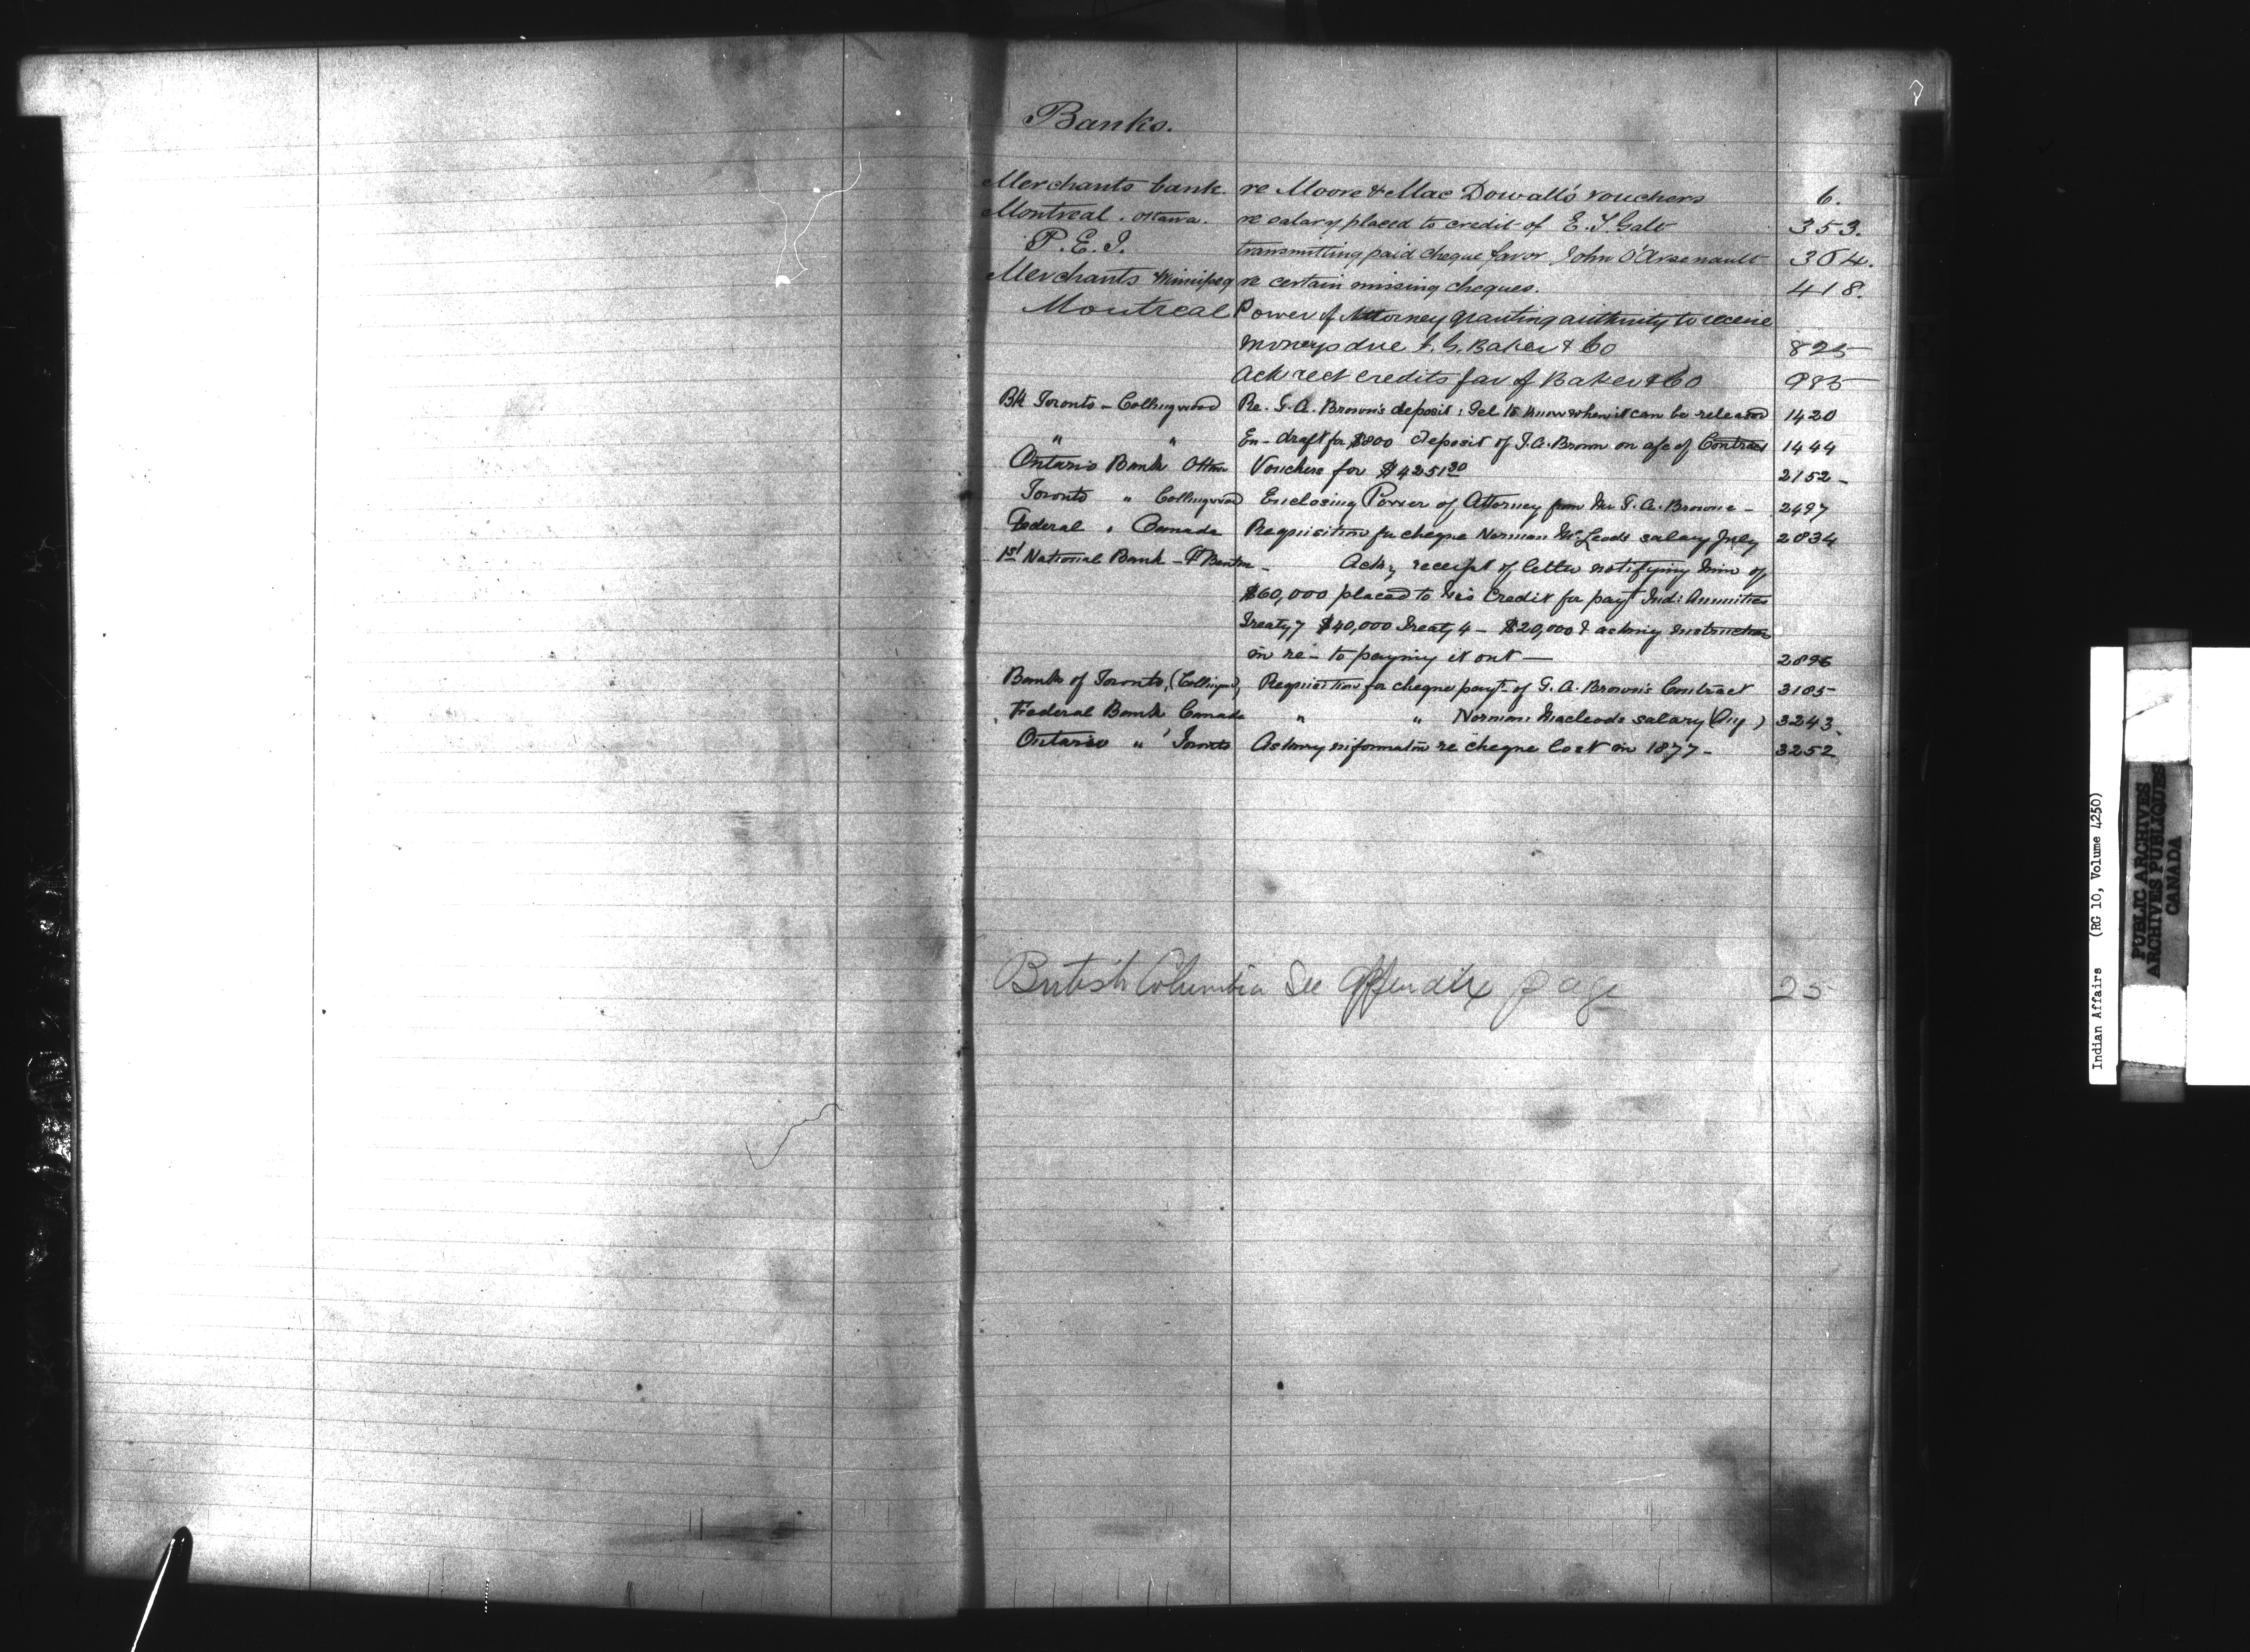 Banks.
Merchants bank. re Moore & Mac Dowall's vouchers 6.
Montreal . Ottawa. re salary placed to credit of E. T. Galt 353.
P. E. I. transmitting paid cheque favor John O'Arsenault 364.
Merchants Winnipeg re certain missing cheques. 418.
Montreal Power of Attorney granting authority to receive
moneys due I. G. Baker & Co 825
Ack rect credits fav of Baker & Co 985
Bk Toronto - Collingwood Re. G. A. Brown's deposit: Tel to know when it can be released 1420
" " En- draft for $800 deposit of G. A. Brown on a/c of Contract 1444
Ontario Bank Ottawa Vouchers for $4251 20 2152 -
Toronto " Collingwood Enclosing Power of Attorney from Mr G. A. Browne - 2497
Federal " Canada Requisition for cheque Norman McLeods salary July 2834
1st National Bank - Ft Benton - Ackg receipt of letter notifying him of
$60,000 placed to his Credit for payt Ind: Annuities
Treaty 7 $40,000 Treaty 4 - $20,000 & asking instructions
in re- to paying it out — 2896
Bank of Toronto, (Collingwd) Requisition for cheque payt of G. A. Brown's Contract 3185
Federal Bank Canada " " Norman Macleods salary (Aug) 3243
Ontario " Toronto Asking information re cheque lost in 1877 - 3252
British Columbia See Appendix page 25
Indian Affairs (RG 10, Volume 4250)
PUBLIC ARCHIVES
ARCHIVES PUBLIQUES
CANADA